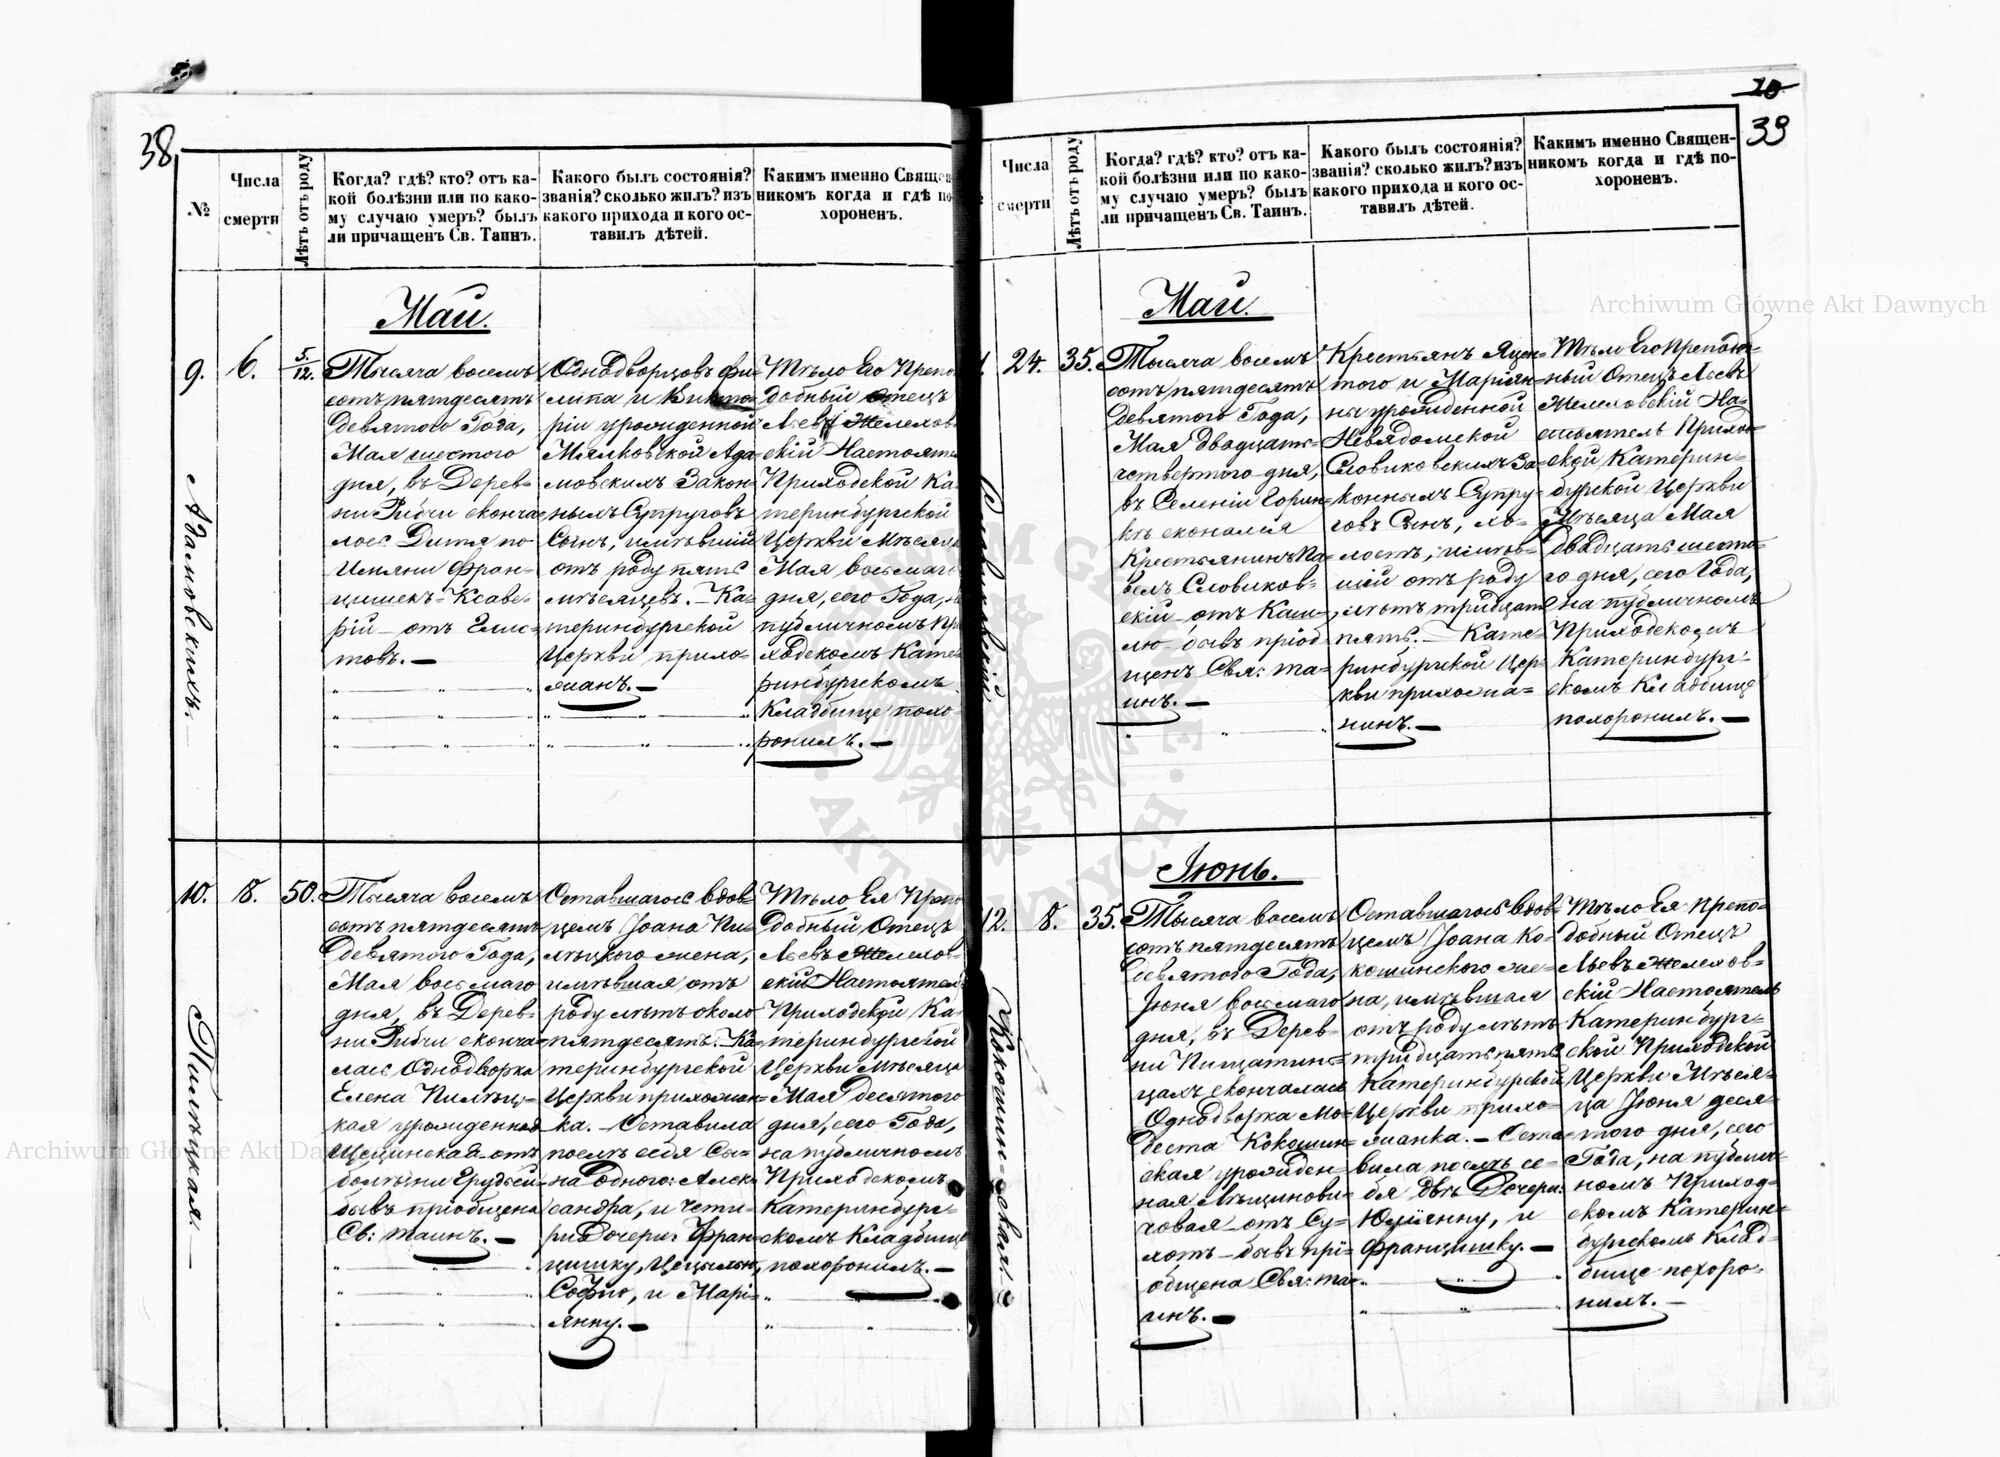 38
№
Числа
смерти
Лѣтъ отъ роду
Когда? гдѣ? кто? отъ ка-
кой болѣзни или по како-
му случаю умеръ? былъ
ли причащенъ Св. Таинъ.
Какого былъ состоянія?
званія? сколько жилъ? изъ
какого прихода и кого ос-
тавилъ дѣтей.
Какимъ именно Священ
никомъ когда и гдѣ по
хороненъ.
Май.
9.
6.
5/12.
Адамовскихъ.
Тысяча восемъ
сотъ пятдесятъ
девятого Года,
Мая шестого
дня, въ Дерев-
ни Рибчи сконча-
лось Дитя по
Имяни Фран-
цишекъ-Ксаве-
рій - отъ Глис-
товъ. —
Однодворцовъ Фи-
липа и Викто-
ріи урожденной
Мялковской Ада-
мовскихъ Закон-
ныхъ Супруговъ
Сынъ, имѣвшій
отъ роду пять
мѣсяцевъ. - Ка-
теринбургской
Церкви прихо-
жанъ. —
Тѣло Его Препо
добный Отецъ
Львъ Желехов
скій Настояте
Приходской Ка-
теринбургской
Церкви Мѣсяца
Мая восьмаго
дня, сего Года, на
публичномъ Пр
ходскомъ Кате-
ринбургскомъ
Кладбище похо
ронилъ. —
10.
8.
50.
Пилѣцкая. —
Тысяча восемъ
сотъ пятдесятъ
Девятого Года,
Мая восьмаго
дня, въ Дерев-
ни Рибчи сконча-
лась Однодворка
Елена Пилѣц-
кая урожденная
Щепинская - отъ
болѣзни Грудной
бывъ пріобщена
Св: таинъ. —
Оставшагося вдов-
цемъ Іоана Пи-
лѣцкого жена,
имѣвшая отъ
роду лѣтъ около
пятдесятъ. - Ка-
теринбургской
Церкви прихожан-
ка. - Оставила
послѣ себя Сы-
на одного: Алек-
сандра, и чети-
ри Дочери: Фран-
цишку, Цецылію,
Софію, и Марі-
янну. —
Тѣло Ея Препо
добный Отецъ
Львъ Желехов-
скій Настоятель
Приходской Ка-
теринбургской
Церкви Мѣсяца
Мая десятого
дня, сего Года,
на публичномъ
Приходскомъ
Катеринбург-
скомъ Кладбище
похоронилъ. —
20
39
Числа
смерти
Лѣтъ отъ роду
Когда? гдѣ? кто? отъ ка-
кой болѣзни или по како-
му случаю умеръ? былъ
ли причащенъ Св. Таинъ.
Какого былъ состоянія?
званія? сколько жилъ? изъ
какого прихода и кого ос-
тавилъ дѣтей.
Какимъ именно Священ-
никомъ когда и гдѣ по-
хороненъ.
Май.
24.
35.
Словиковскій
Тысяча восемъ
сотъ пятдесятъ
девятого Года,
Мая двадцать-
четвертого дня,
въ Селеніи Горин-
кѣ скончался
Крестьянинъ Па-
велъ Словиков-
скій - отъ Каш-
лю - бывъ пріоб-
щенъ Свя: та-
инъ. —
Крестьянъ Яцен-
того и Маріян-
ны урожденной
Невядомской
Словиковскихъ За-
конныхъ Супру-
говъ Сынъ, хо-
лостъ, имѣв-
шій отъ роду
лѣтъ тридцать
пять. - Кате-
ринбургской Цер-
кви прихожа-
нинъ. —
Тѣло Его Преподоб-
ный Отецъ Львъ
Желеховскій На-
стоятель Прихо-
дской Катерин-
бургской Церкви
Мѣсяца Мая
двадцать шесто-
го дня, сего Года,
на публичномъ
Приходскомъ
Катеринбург-
скомъ Кладбище
похоронилъ. —
Іюнь.
12.
8.
35.
Кокошин-ская. —
Тысяча восемъ
сотъ пятдесятъ
девятого Года,
Іюня восьмаго
дня, въ Дерев-
ни Пищатин-
цахъ скончалась
Однодворка Мо-
деста Кокошин-
ская урожден-
ная Мѣщинови-
човая - отъ Су-
хотъ - бывъ прі-
общена Свя: та-
инъ. —
Оставшагося вдов-
цемъ Іоана Ко-
кошинского же-
на, имѣвшая
отъ роду лѣтъ
тридцать пять
Катеринбурской
Церкви прихо-
жанка. - Оста-
вила послѣ се-
бя двѣ Дочери:
Юліянну, и
Францишку. —
Тѣло Ея Препо-
добный Отецъ
Львъ Желехов-
скій Настоятель
Катеринбург-
ской Приходской
Церкви Мѣся-
ца Іюня деся-
того дня, сего
Года, на публич-
номъ Приход-
скомъ Катерин-
бургскомъ Клад-
бище похоро-
нилъ. —
Archiwum Główne Akt Dawnych
Archiwum Główne Akt Dawnych